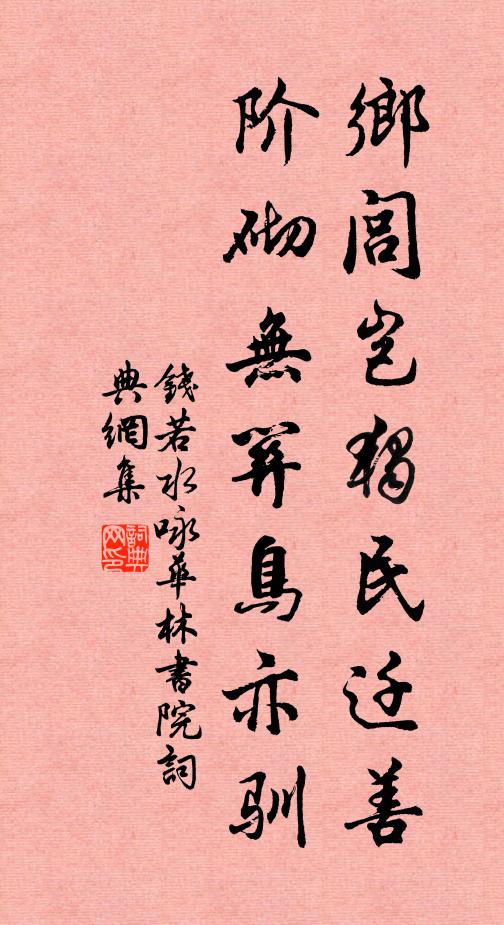 鄉閭豈獨民迁善
阶砌無鳥亦驯
錢若水咏華林書院詞
典網集
詞典网印